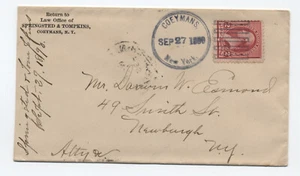 Return to
Law Office of
SPRINGSTED & TOMPKINS,
COEYMANS, N. Y.
COEYMANS,
SEP 27 1898
New York.
Mr. Darwin W. Esmond
49 Smith St.
Newburgh
N.Y.
Atty &c.
Springsted & Tompkins
Sept. 27, 1898